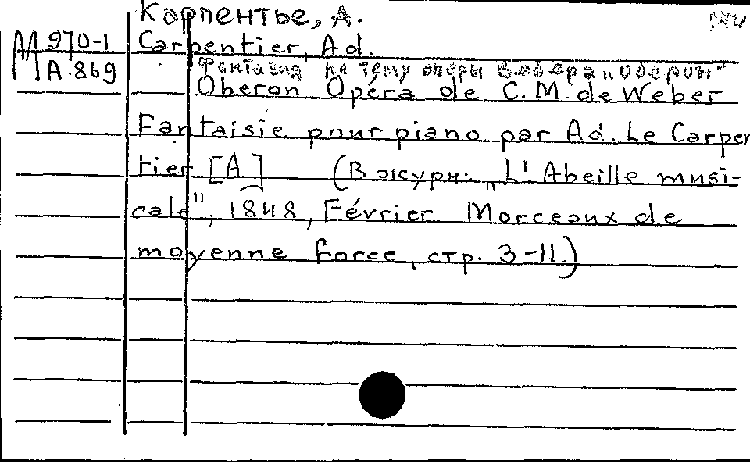 Карпентье, А.
М 970-1 Carpentier, Ad.
А 869 Фантазия на тему оперы Вебера "Оберон"
Oberon Opéra de C.M. de Weber
Fantaisie pour piano par Ad. Le Carpen
tier [A] (В журн: „L'Abeille musi-
cale", 1848, Février. Morceaux de
moyenne force, стр. 3-11.)